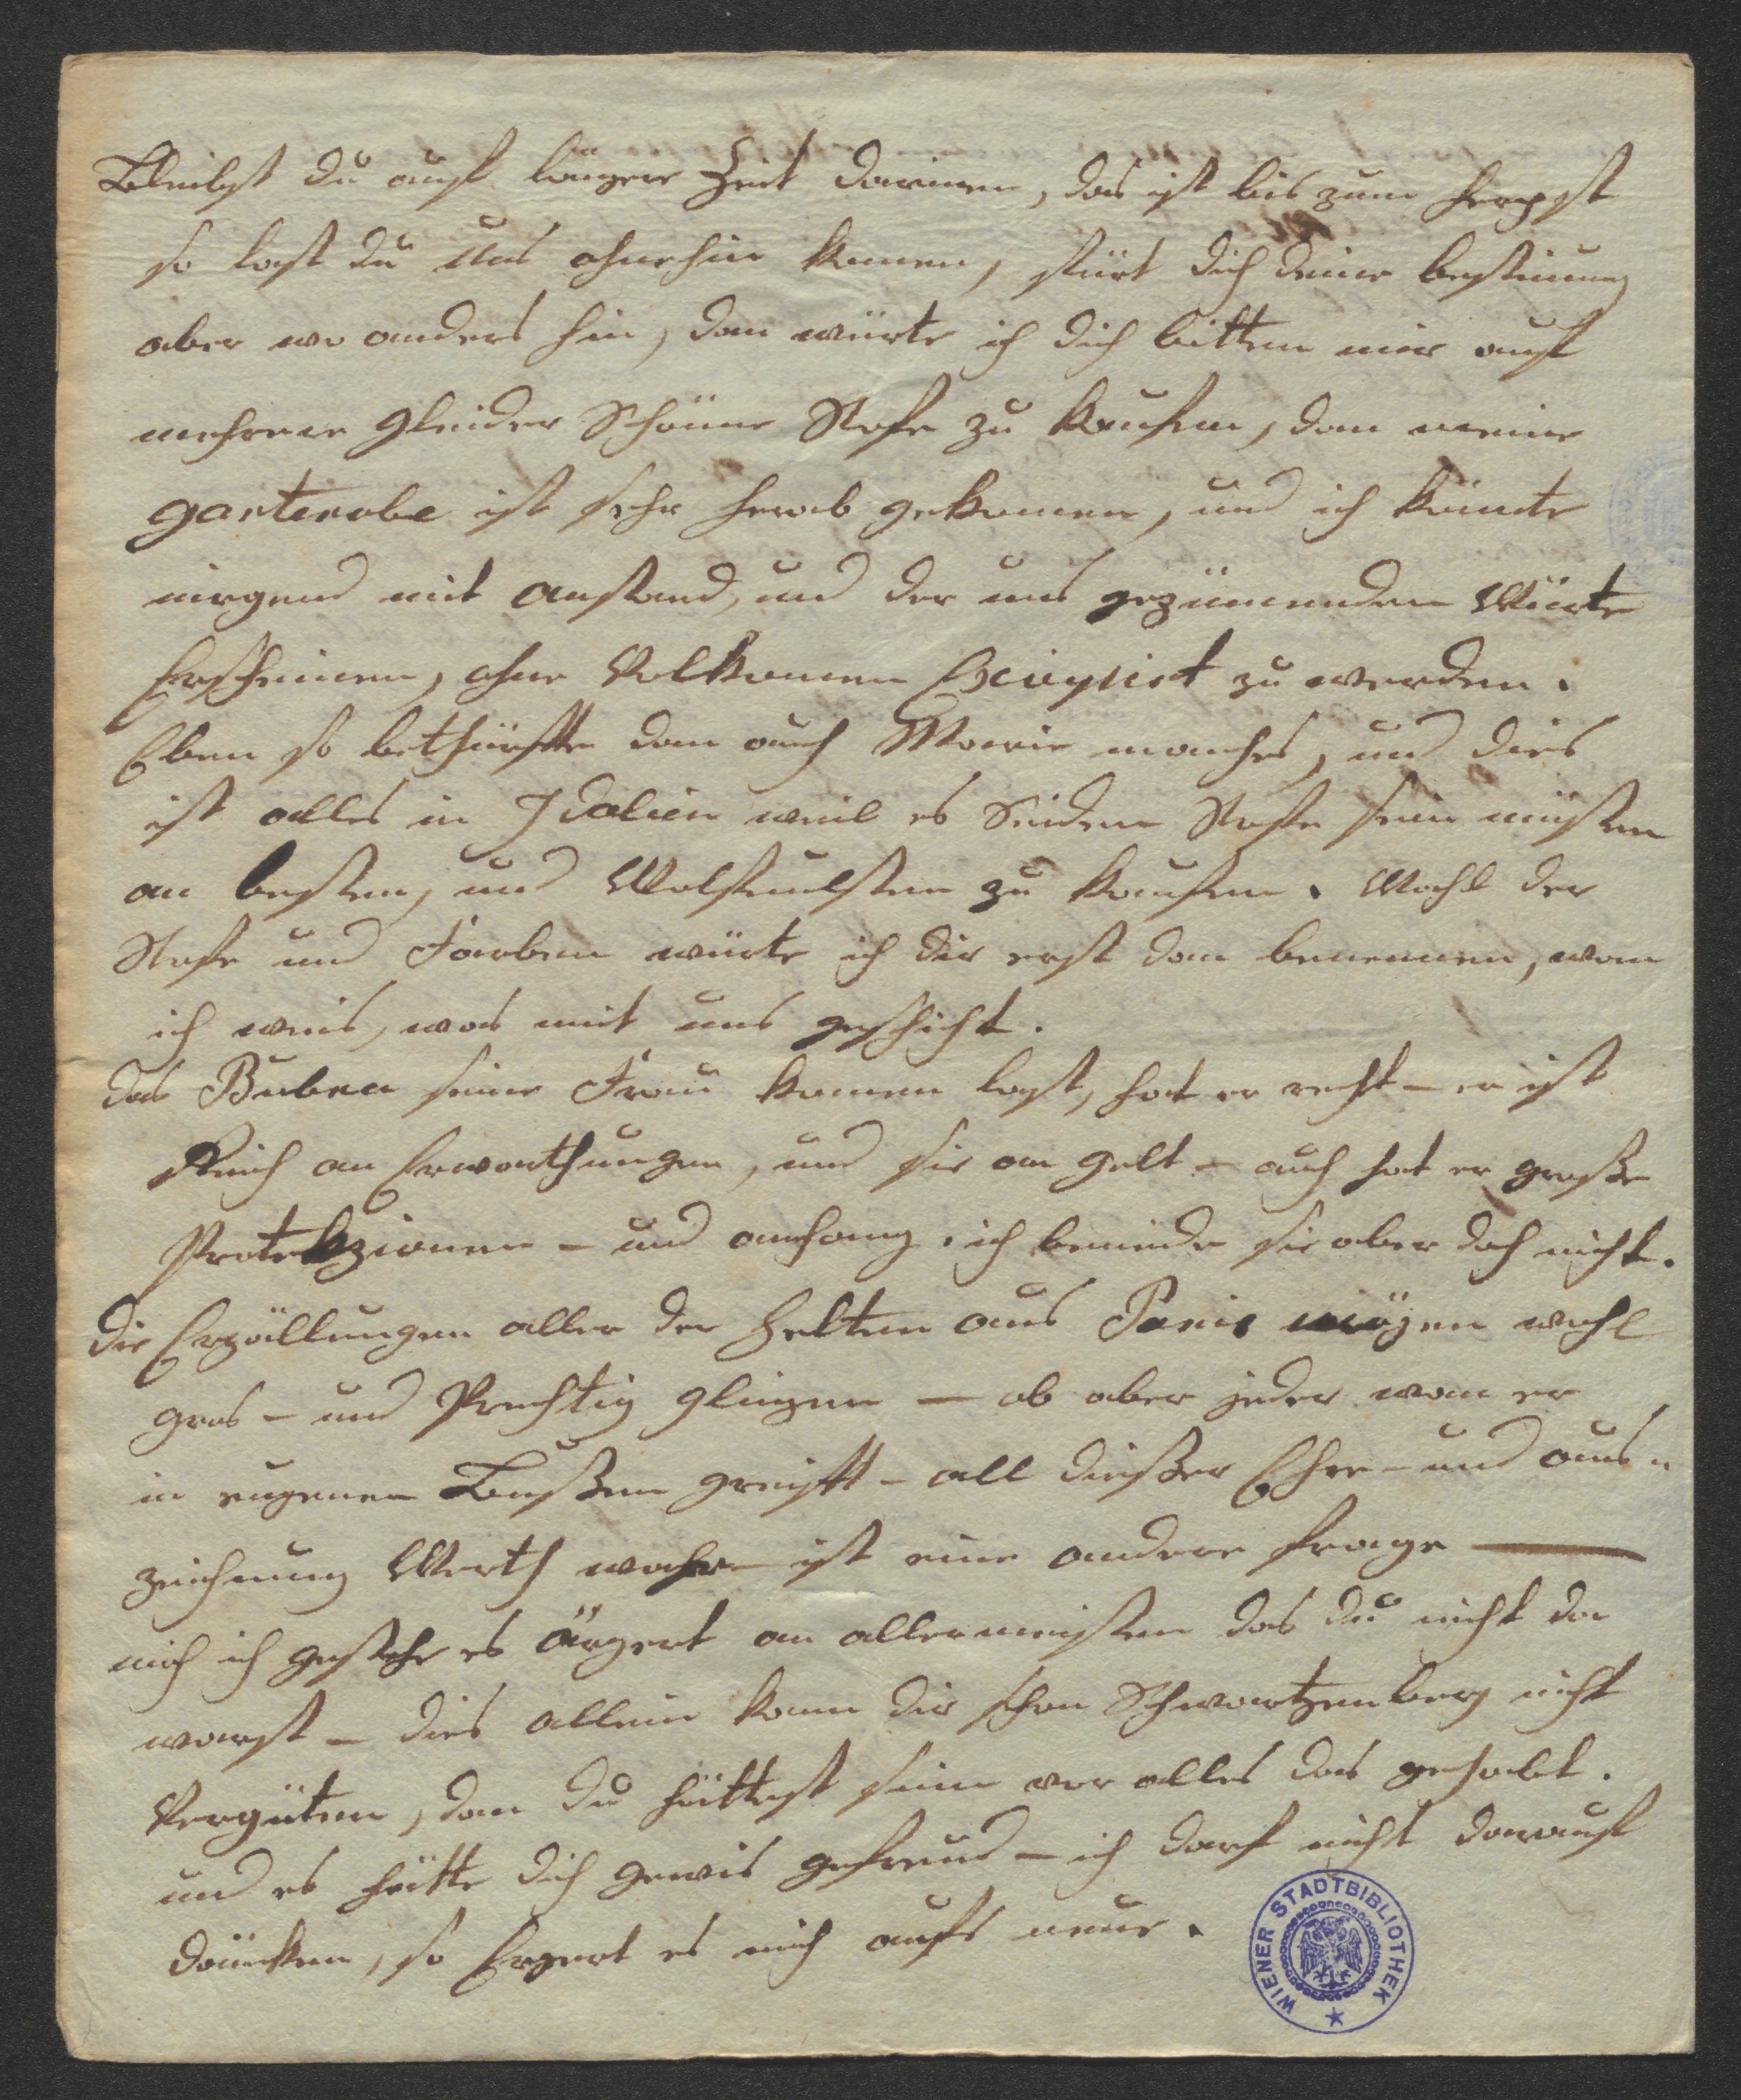 Bleibst du auf länger Zeit darinen, das ist bis zum Herpst
so last du uns ohnehin komen, fürt dich deine bestimung
aber wo anders hin, dan würte ich dich bitten mir auf
mehrere gleider Schöne Stofe zu kaufen, dan meine
garterobe ist sehr herab gekomen, und ich könnte
nirgend mit anstand, und der uns gezimmenden Würte
Erscheinen, ohne Volkomen Equipirt zu werden.
Eben so bethürfte dan auch Marie manches, und dies
ist alles in Idalien weil es Seidene Stofe sein müsten
am besten, und Wolfeulsten zu kaufen. Wahl der
Stofe und Farben würte ich dir erst dan benennen, wan
ich weis, was mit uns geschicht.
das Bubna seine Frau komen last, hat er recht – er ist
Reich an Erwarthungen, und sie an gelt – auch hat er große
Protekzionen – und anhang. ich beneide sie aber doch nicht.
die Erzällungen aller der Helten aus Paris mögen wohl
gros – und Prechtig glingen – ob aber jeder wan er
in eugenen Bußen greifft – all dießer Ehre – und aus-
zeichnung Werth wahr – ist eine andere frage —
mich ich gestehe es ärgert am allermeisten das du nicht da
warst – dies allein kann dir schon Schwartzenberg nicht
Vergüten, dan du hättest sinn vor alles das gehabt.
und es hätte dich gewis gefreud – ich darf nicht darauf
däncken, so Ergert es mich aufs neue.
WIENER STADTBIBLIOTHEK